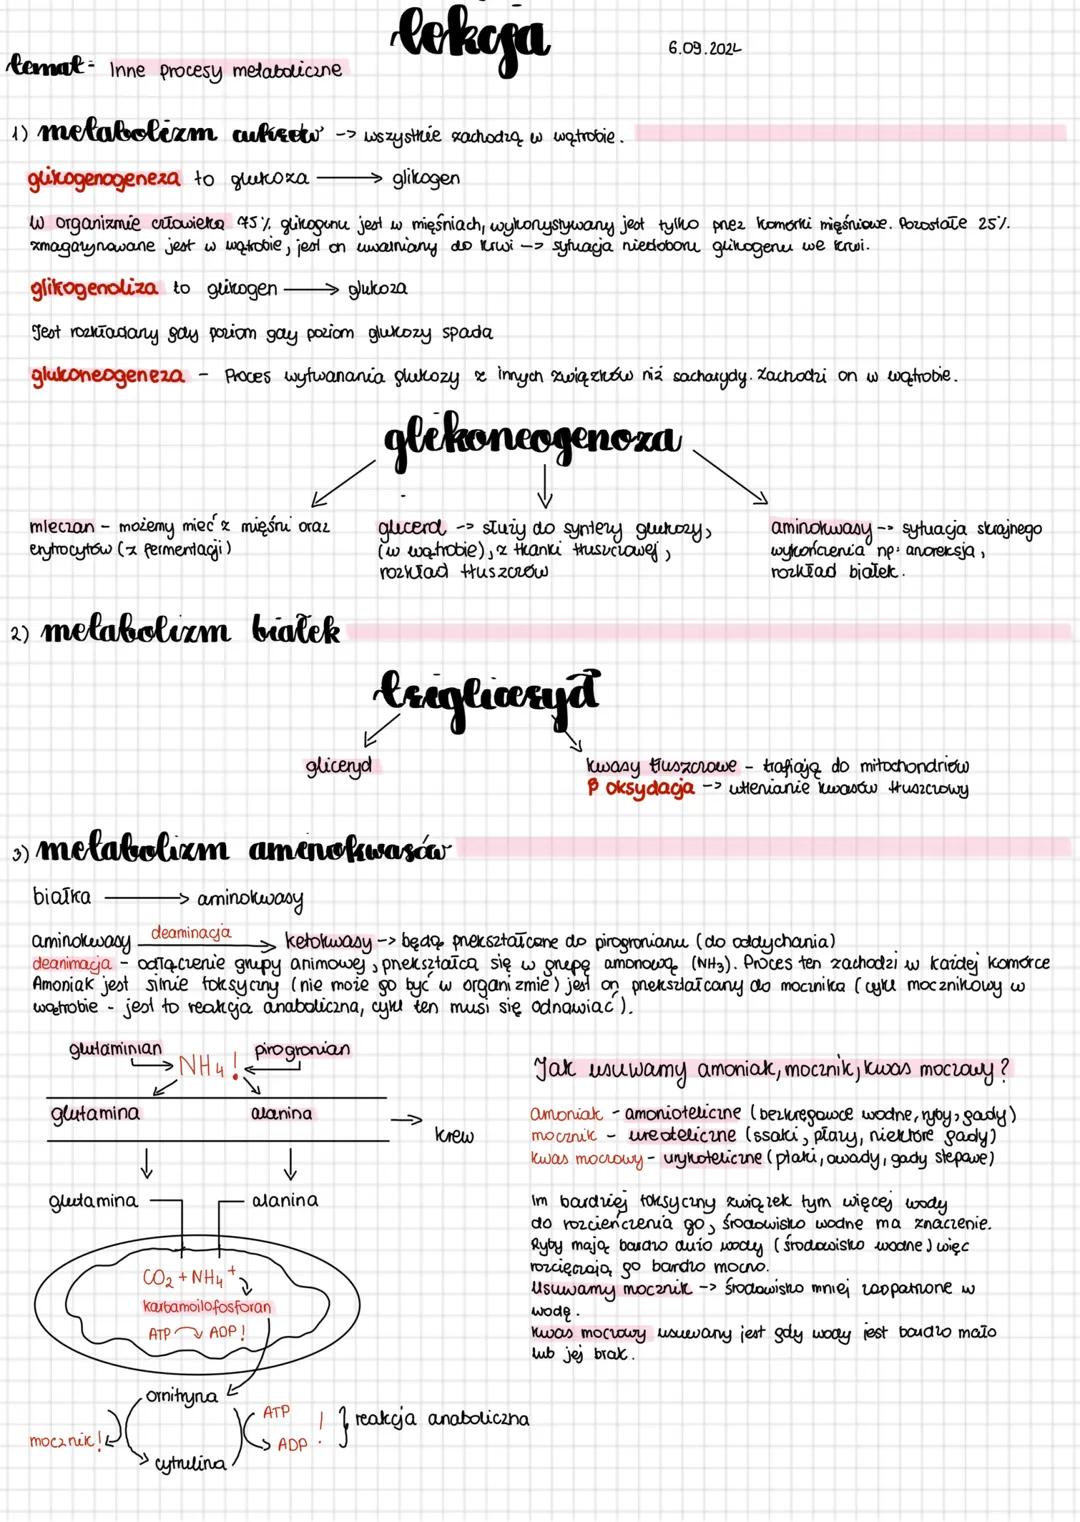 lekcja
6.09.2024
temat- Inne procesy metaboliczne
1) metabolizm cukrów -> wszystkie zachodzą w wątrobie.
glikogenogeneza to glukoza → glikogen
W organizmie człowieka 75% glikogenu jest w mięśniach, wykorzystywany jest tylko przez komórki mięśniowe. Pozostałe 25%
zmagazynowane jest w wątrobie, jest on uwalniany do krwi -> sytuacja niedoboru glikogenu we krwi.
glikogenoliza to glikogen → glukoza
Jest rozkładany gdy poziom gdy poziom glukozy spada
glukoneogeneza - Proces wytwarzania glukozy z innych związków niż sacharydy. Zachodzi on w wątrobie.
glikoneogenoza
mleczan - możemy mieć z mięśni oraz
erytrocytów (z fermentacji)
glicerol -> służy do syntezy glukozy,
(w wątrobie), z tkanki tłuszczowej,
rozkład tłuszczów
aminokwasy -> sytuacja skrajnego
wykończenia np: anoreksja,
rozkład białek.
2) metabolizm białek
trigliceryd
gliceryd
kwasy tłuszczowe - trafiają do mitochondriów
β oksydacja -> utlenianie kwasów tłuszczowy
3) metabolizm aminokwasów
białka → aminokwasy
aminokwasy deaminacja → ketokwasy -> będą przekształcone do pirogronianu (do oddychania)
deanimacja - odłączenie grupy animowej, przekształca się w grupę amonową (NH3). Proces ten zachodzi w każdej komórce
Amoniak jest silnie toksyczny (nie może go być w organizmie) jest on przekształcany do mocznika (cykl mocznikowy w
wątrobie - jest to reakcja anaboliczna, cykl ten musi się odnawiać).
glutaminian → NH4! ← pirogronian
glutamina alanina
→ krew
glutamina alanina
CO2 + NH4+
karbamoilofosforan
ATP ADP!
ornityna
mocznik!
ATP
ADP !
} reakcja anaboliczna
cytrulina
Jak usuwamy amoniak, mocznik, kwas moczowy?
amoniak - amonioteliczne (bezkręgowce wodne, ryby, gady)
mocznik - ureoteliczne (ssaki, płazy, niektóre gady)
kwas moczowy - urykoteliczne (ptaki, owady, gady stepowe)
Im bardziej toksyczny związek tym więcej wody
do rozcieńczenia go, środowisko wodne ma znaczenie.
Ryby mają bardzo dużo wody (środowisko wodne) więc
rozcięczają go bardzo mocno.
Usuwamy mocznik -> środowisko mniej zaopatrzone w
wodę.
kwas moczowy usuwany jest gdy wody jest bardzo mało
lub jej brak.